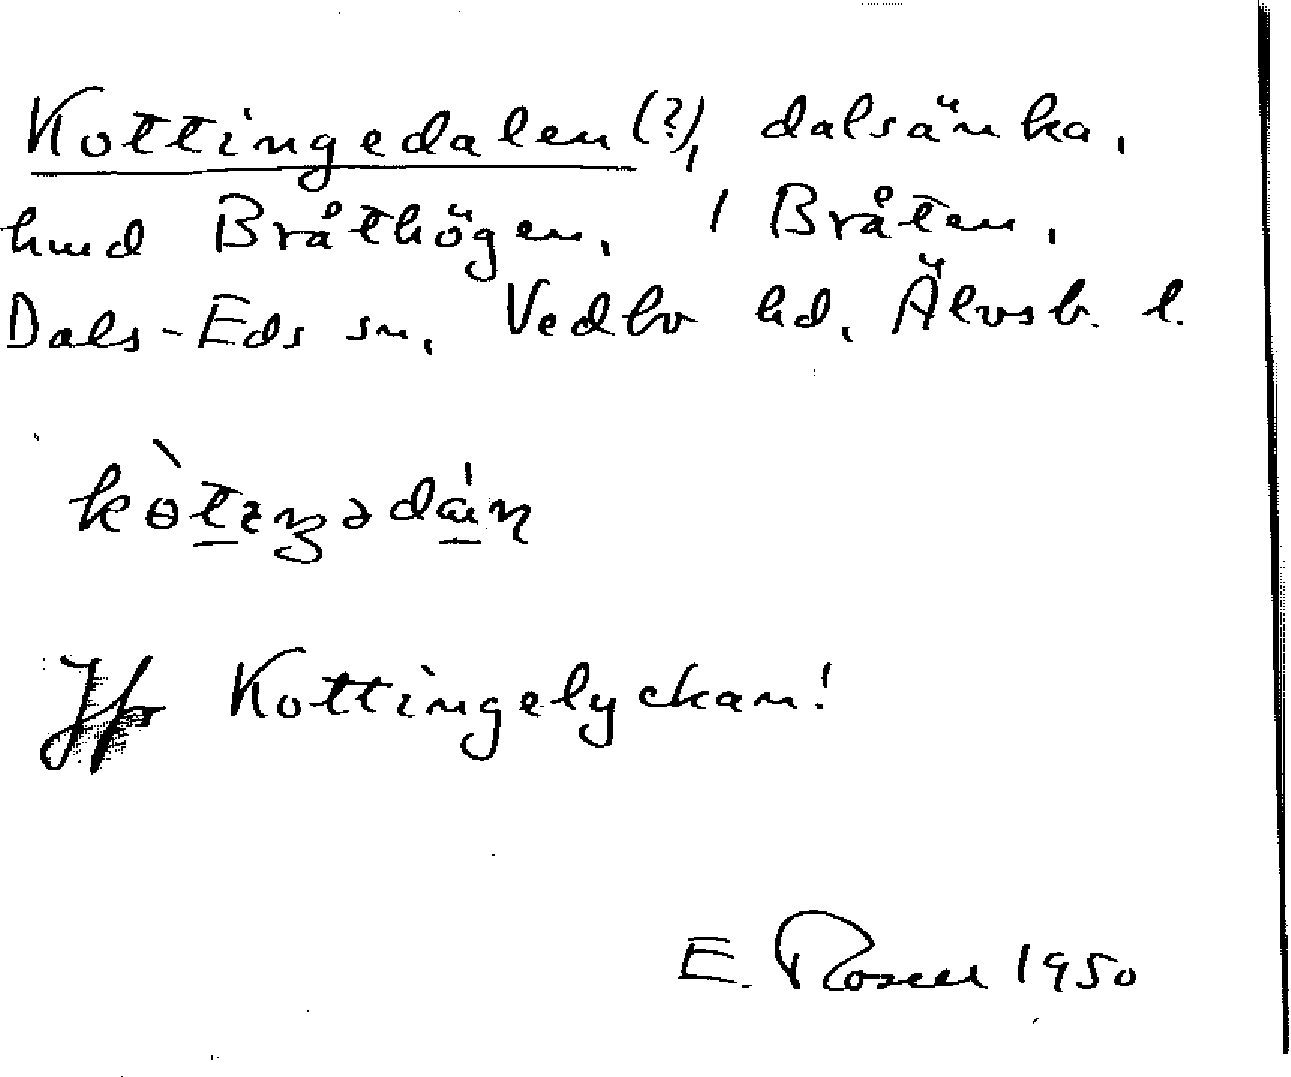 Kottingedalen (?), dalsänka,
hmd Bråthögen, 1 Bråten,
Dals-Eds sn, Vedbo hd, Älvsb. l.
Jfr Kottingelyckan!
E. Rosell 1950